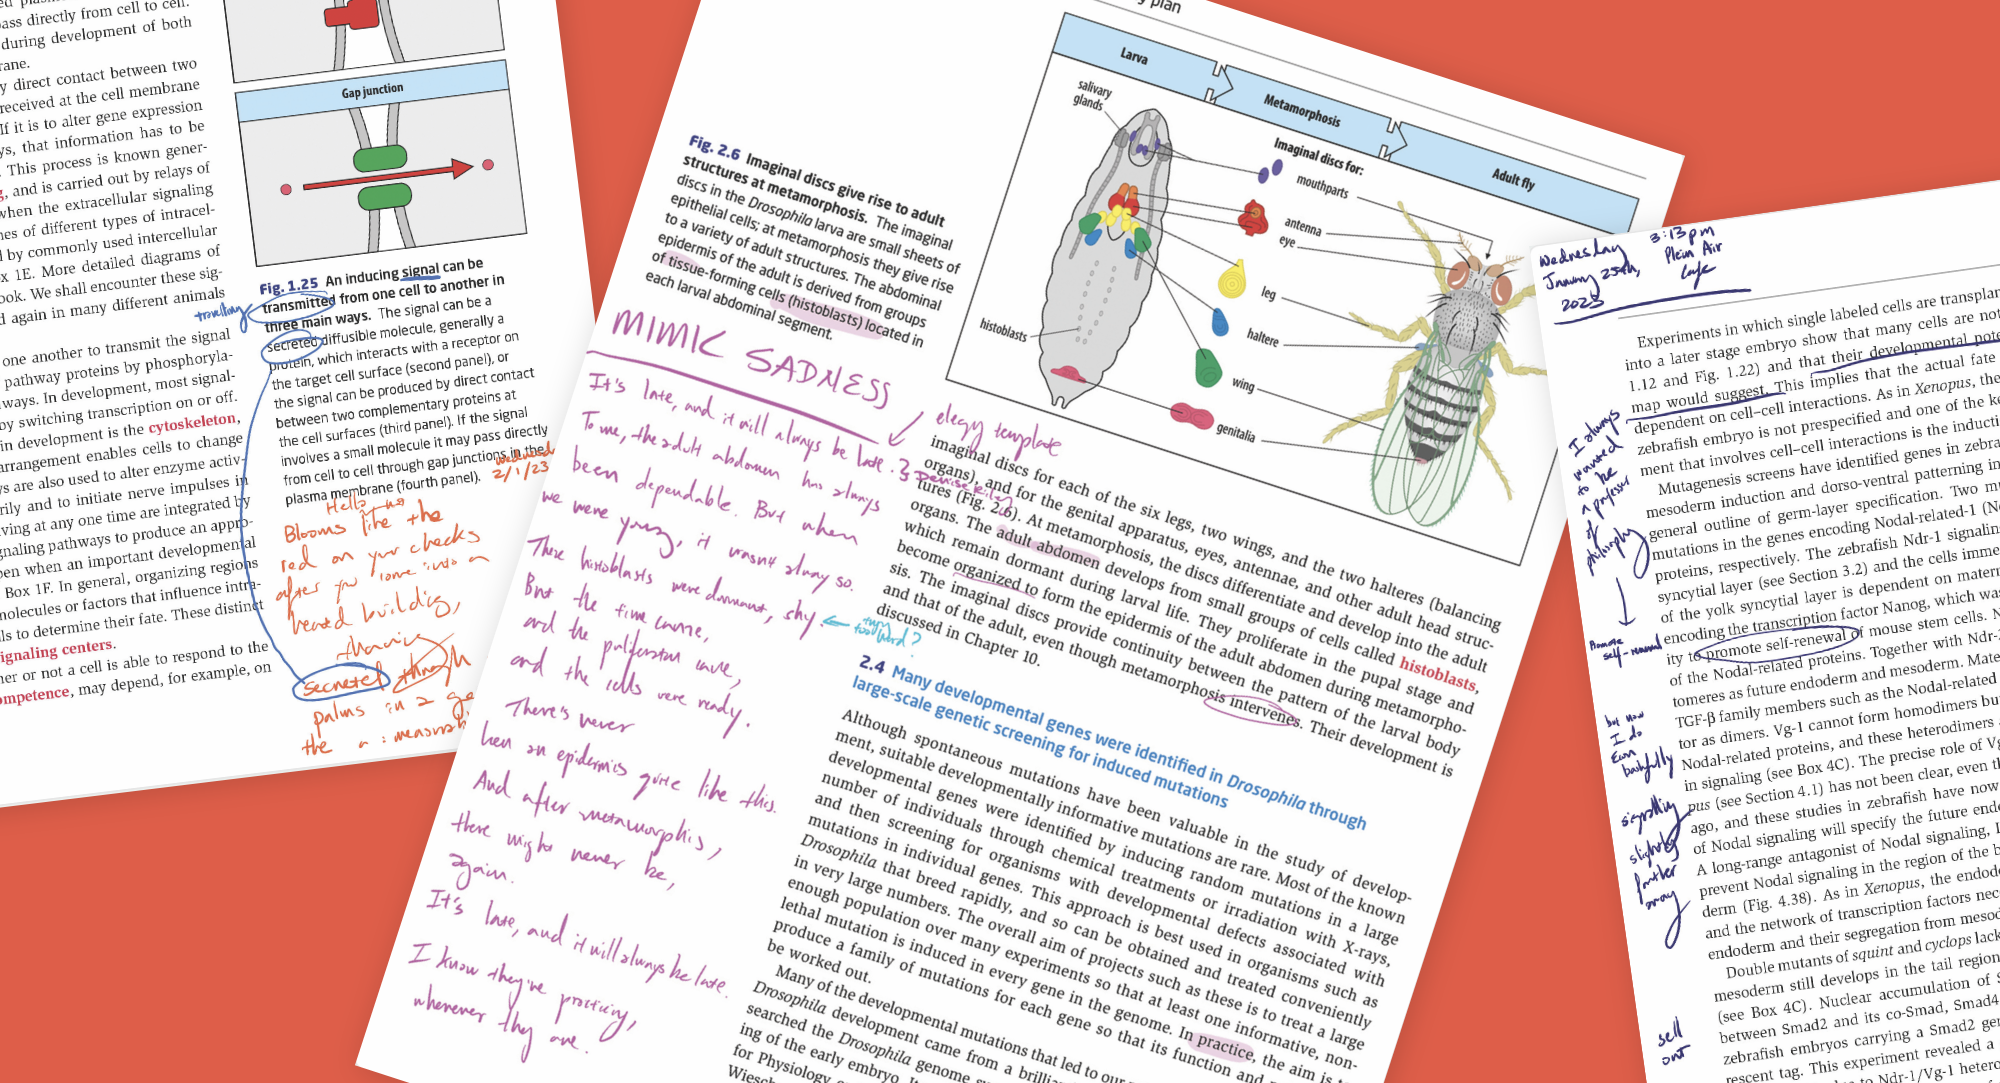 ass directly from cell to cell.
during development of both
rane.
y direct contact between two
received at the cell membrane
If it is to alter gene expression
ys, that information has to be
This process is known gener-
g, and is carried out by relays of
when the extracellular signaling
nes of different types of intracel-
d by commonly used intercellular
x 1E. More detailed diagrams of
ook. We shall encounter these sig-
d again in many different animals
one another to transmit the signal
pathway proteins by phosphoryla-
ways. In development, most signal-
by switching transcription on or off.
in development is the cytoskeleton,
arrangement enables cells to change
ys are also used to alter enzyme activ-
rily and to initiate nerve impulses in
iving at any one time are integrated by
gnaling pathways to produce an appro-
pen when an important developmental
Box 1F. In general, organizing regions
molecules or factors that influence intra-
lls to determine their fate. These distinct
signaling centers.
her or not a cell is able to respond to the
ompetence, may depend, for example, on
Gap junction
Fig. 1.25 An inducing signal can be
transmitted from one cell to another in
three main ways. The signal can be a
secreted diffusible molecule, generally a
protein, which interacts with a receptor on
the target cell surface (second panel), or
the signal can be produced by direct contact
between two complementary proteins at
the cell surfaces (third panel). If the signal
involves a small molecule it may pass directly
from cell to cell through gap junctions in the
plasma membrane (fourth panel).
travelling
2/1/23
Blooms like the
red on your cheeks
after you come into a
heated building,
secreted through
palms in a
the
y plan
Larva
Metamorphosis
Adult fly
salivary
glands
Imaginal discs for:
mouthparts
antenna
eye
leg
haltere
wing
genitalia
histoblasts
Fig. 2.6 Imaginal discs give rise to adult
structures at metamorphosis. The imaginal
discs in the Drosophila larva are small sheets of
epithelial cells; at metamorphosis they give rise
to a variety of adult structures. The abdominal
epidermis of the adult is derived from groups
of tissue-forming cells (histoblasts) located in
each larval abdominal segment.
MIMIC SADNESS
elegy template
It's late, and it will always be late. } Denise Riley
To me, the adult abdomen has always
been dependable. But when
we were young, it wasn't always so.
These histoblasts were dormant, shy.
turn
toward?
But the time came,
and the pulferation came,
and the cells were ready.
There's never
been an epidermis quite like this.
And after metamorphis,
there might never be,
again.
It's late, and it will always be late.
I know they're practicing,
wherever they are.
imaginal discs for each of the six legs, two wings, and the two halteres (balancing
organs), and for the genital apparatus, eyes, antennae, and other adult head struc-
tures (Fig. 2.6). At metamorphosis, the discs differentiate and develop into the adult
organs. The adult abdomen develops from small groups of cells called histoblasts,
which remain dormant during larval life. They proliferate in the pupal stage and
become organized to form the epidermis of the adult abdomen during metamorpho-
sis. The imaginal discs provide continuity between the pattern of the larval body
and that of the adult, even though metamorphosis intervenes. Their development is
discussed in Chapter 10.
2.4 Many developmental genes were identified in Drosophila through
large-scale genetic screening for induced mutations
Although spontaneous mutations have been valuable in the study of develop-
ment, suitable developmentally informative mutations are rare. Most of the known
developmental genes were identified by inducing random mutations in a large
number of individuals through chemical treatments or irradiation with X-rays,
and then screening for organisms with developmental defects associated with
mutations in individual genes. This approach is best used in organisms such as
Drosophila that breed rapidly, and so can be obtained and treated conveniently
in very large numbers. The overall aim of projects such as these is to treat a large
enough population over many experiments so that at least one informative, non-
lethal mutation is induced in every gene in the genome. In practice, the aim is to
produce a family of mutations for each gene so that its function and
be worked out.
Many of the developmental mutations that led to our
Drosophila development came from a brillian
searched the Drosophila genome
ing of the early embryo. It
for Physiology
Wiesch
Wednesday 3:13 pm
January 25th, Plein Air
2023 Cafe
I always
wanted
to be
a professor
of
philosophy
Promote
self-renewal
but now
I do
Earn
bashfully
signalling
slightly
further
away
sell
out
Experiments in which single labeled cells are transplan
into a later stage embryo show that many cells are not
1.12 and Fig. 1.22) and that their developmental pote
map would suggest. This implies that the actual fate
dependent on cell–cell interactions. As in Xenopus, the
zebrafish embryo is not prespecified and one of the ke
ment that involves cell–cell interactions is the inducti
Mutagenesis screens have identified genes in zebra
mesoderm induction and dorso-ventral patterning in
general outline of germ-layer specification. Two mu
mutations in the genes encoding Nodal-related-1 (N
proteins, respectively. The zebrafish Ndr-1 signalin
syncytial layer (see Section 3.2) and the cells imme
of the yolk syncytial layer is dependent on matern
encoding the transcription factor Nanog, which was
ity to promote self-renewal of mouse stem cells. N
of the Nodal-related proteins. Together with Ndr-
tomeres as future endoderm and mesoderm. Mate
TGF-β family members such as the Nodal-related
tor as dimers. Vg-1 cannot form homodimers bu
Nodal-related proteins, and these heterodimers a
in signaling (see Box 4C). The precise role of Vg
pus (see Section 4.1) has not been clear, even th
ago, and these studies in zebrafish have now
of Nodal signaling will specify the future ende
A long-range antagonist of Nodal signaling, L
prevent Nodal signaling in the region of the b
derm (Fig. 4.38). As in Xenopus, the endode
and the network of transcription factors nece
endoderm and their segregation from mesod
Double mutants of squint and cyclops lack
mesoderm still develops in the tail region
(see Box 4C). Nuclear accumulation of S
between Smad2 and its co-Smad, Smad4
zebrafish embryos carrying a Smad2 gen
rescent tag. This experiment revealed a
to Ndr-1/Vg-1 hetero